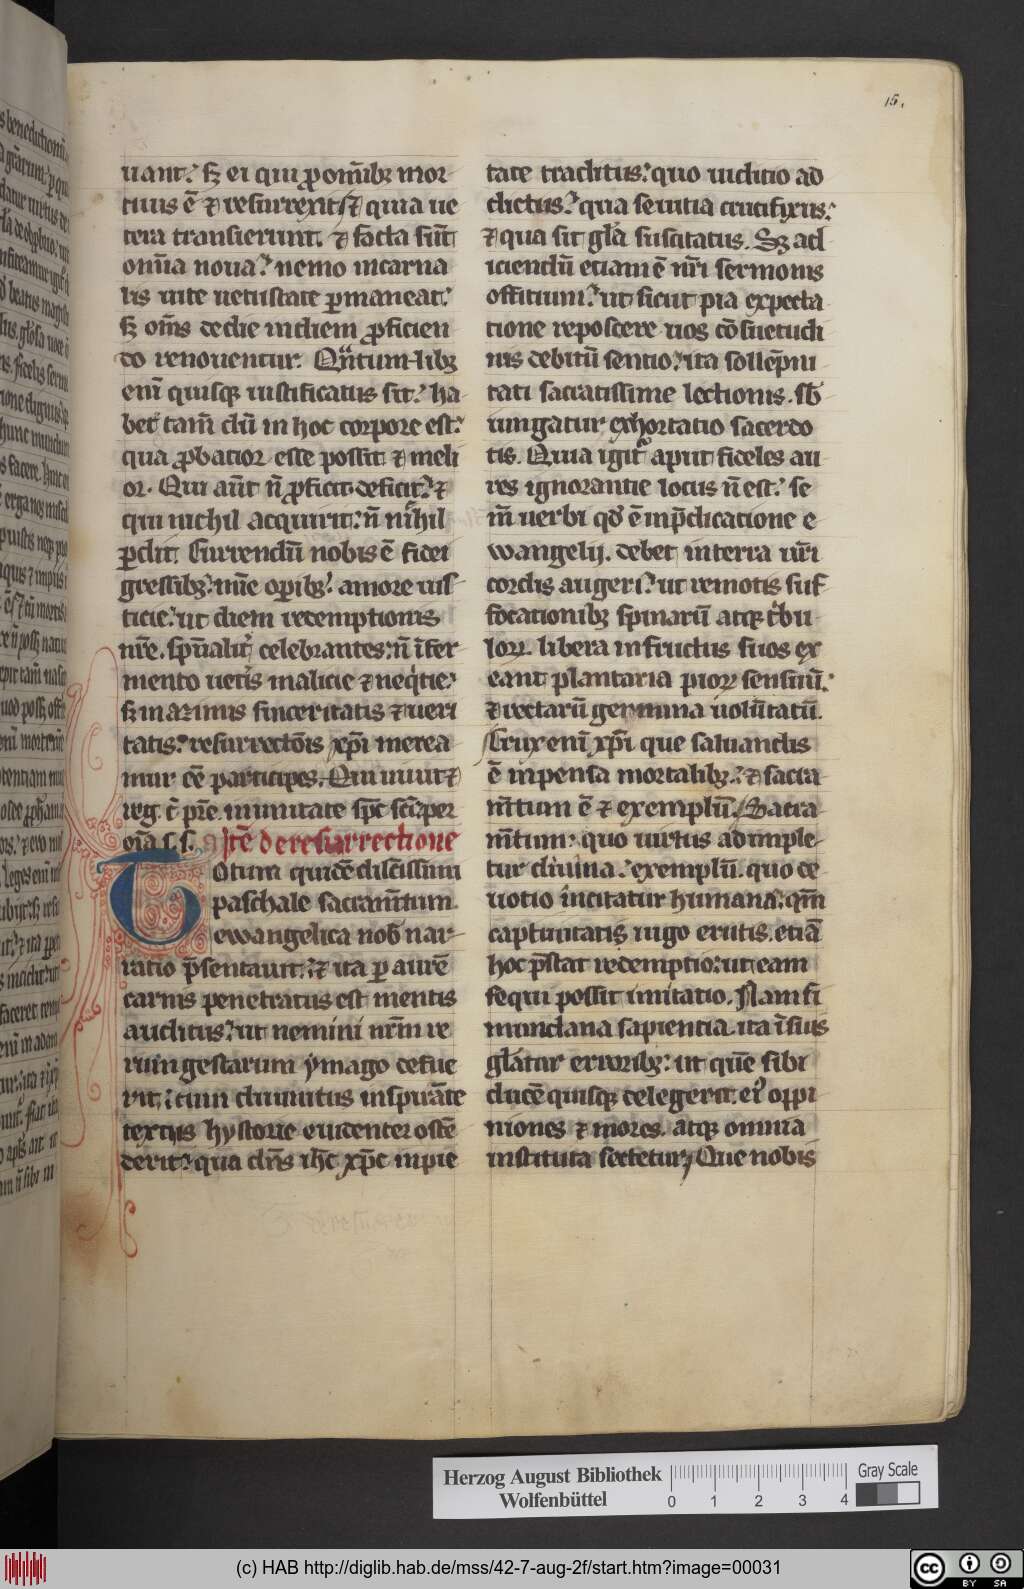 15.
uant. sꝫ ei qui ꝓ om̄ibꝫ mor
tuus ē ⁊ resurrexit. ⁊ quia ue
tera transierunt. ⁊ facta sūt
om̄ia noua. nemo in carna
lis uite uetustate ꝑmaneat.
sꝫ om̄s de die in diem ꝓficien
do renouentur. Qͣntumlibꝫ
enī quisqꝫ iustificatus sit. ha
bet tam̄ dū in hoc corpore est.
qua ꝓbatior esse possit ⁊ meli
or. Qui aūt n̄ ꝓficit. deficit. ⁊
qui nichil acquirit. n̄ nichil
ꝑdit. Currendū nobis ē fidei
gressibꝫ. mīe oꝑibꝫ. amore iusͣ
ticie. ut diem redemptionis
nr̄e. sp̄ualit̛ celebrantes. n̄ ī fer
mento uet̛is malicie ⁊ neqͥtie.
sꝫ in azimis sinceritatis ⁊ ueri
tatis. resurrectōis xp̄i merea
mur eē participes. Qui uiuit ⁊
reg. c̄ pr̄e. in unitate sp̄c sc̄i. per
om̄ia s. s. Itē de resurrectione
Totum quidē discissimi
paschale sacram̄tum
ewangelica nob̄ nar
ratio p̄sentauit. ⁊ ita ꝑ aurē
carnis penetratus est mentis
auditus. ut nemini nr̄m re
rum gestarum ymago defue
rit. cum diuinitus inspirāte
textus hystorie euidenter ostē
derit. qua dn̄s ih̄c xp̄c inpie
tate traditus. quo iudicio ad
dictus. qua seuitia crucifixus.
⁊ qua sit gl̄a suscitatus. Sꝫ ad
iciendū etiam ē nr̄i sermonis
offitium. ut sicut pia expecta
tione reposcere uos cōsuetudi
nis debitū sentio. ita sollēpni
tati sacratissime lectionis. sb̄
iungatur exhortatio sacerdo
tis. Quia igit̛ aput fideles au
res ignorantie locus n̄ est. se
m̄ uerbi qd̄ ē in p̄dicatione e
wangelij. debet in terra ur̄i
cordis augeri. ut remotis suf
focationibꝫ spinarū atqꝫ tͥbu
lorꝝ. libera in fructus suos ex
eant plantaria piorꝝ sensuū.
⁊ rectarū germina uolūtatū.
Crux enī xp̄i que saluandis
ē inpensa mortalibꝫ. ⁊ sacra
m̄tum ē ⁊ exemplū. Sacra
m̄tum. quo uirtus adimple
tur diuina. exemplū. quo de
uotio incitatur humana. qm̄
captiuitatis iugo erutis. etiā
hoc p̄stat redemptio. ut eam
sequi possit imitatio. Nam si
mundana sapientia. ita ī suis
gl̄atur erroribꝫ. ut quē sibi
ducē quisqꝫ delegerit. ei̛ opi
niones ⁊ mores. atqꝫ omnia
instituta sectetur. Que nobis
Herzog August Bibliothek
Wolfenbüttel
0 1 2 3 4
Gray Scale
(c) HAB http://diglib.hab.de/mss/42-7-aug-2f/start.htm?image=00031
cc BY SA